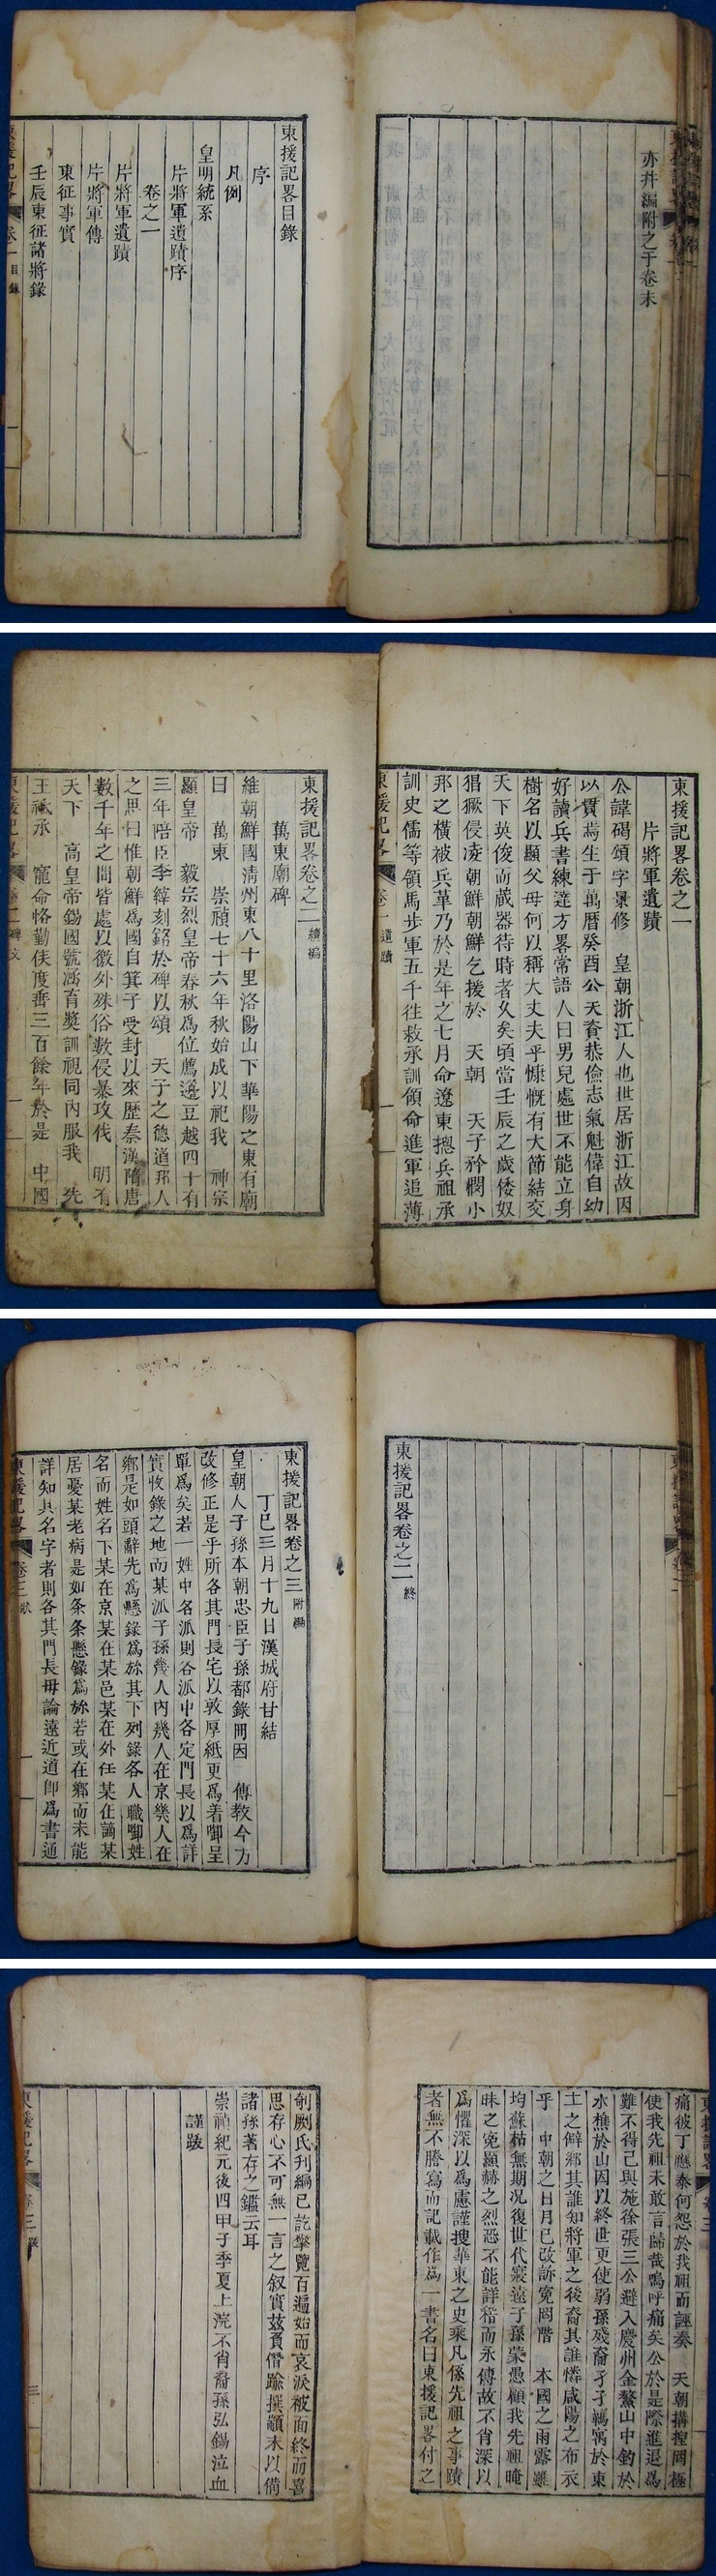 亦幷編附之于卷末
東援記畧目錄
序
凡例
皇明統系
片將軍遺蹟序
卷之一
片將軍遺蹟
片將軍傳
東征事實
壬辰東征諸將錄
東援記畧 卷一 目錄
東援記畧卷之一
片將軍遺蹟
公諱碣頌字景修 皇朝浙江人也世居浙江故因
以貫焉生于萬曆癸酉公天資恭儉志氣魁偉自幼
好讀兵書練達方畧常語人曰男兒處世不能立身
樹名以顯父母何以稱大丈夫乎慷慨有大節結交
天下英俊而藏器待時者久矣頃當壬辰之歲倭奴
猖獗侵凌朝鮮朝鮮乞援於 天朝 天子矜憫小
邦之橫被兵革乃於是年之七月命遼東摠兵祖承
訓史儒等領馬步軍五千往救承訓領命進軍追薄
東援記畧 卷一 遺蹟
東援記畧卷之二 續編
萬東廟碑
維朝鮮國淸州東八十里洛陽山下華陽之東有廟
曰 萬東 崇禎七十六年秋始成以祀我 神宗
顯皇帝 毅宗烈皇帝春秋爲位薦邊豆越四十有
三年陪臣李縡刻銘於碑以頌 天子之德道邦人
之思曰惟朝鮮爲國自箕子受封以來歷秦漢隋唐
數千年之間皆處以徼外殊俗數侵暴攻伐 明有
天下 高皇帝錫國號涵育奬訓視同內服我 先
王祗承 寵命恪勤侯度垂三百餘年於是 中國
東援記畧 卷二 碑文
東援記畧卷之二 終
東援記畧卷之三 附編
丁巳三月十九日漢城府甘結
皇朝人子孫本朝忠臣子孫都錄冊因 傳敎今方
改修正是乎所各其門長宅以敦厚紙更爲着啣呈
單爲矣若一姓中名派則各派中各定門長以爲詳
實收錄之地而某派子孫幾人內幾人在京幾人在
鄕是如頭辭先爲懸錄爲旀其下列錄各人職啣姓
名而姓名下某在京某在某邑某在外任某在謫某
居憂某老病是如条条懸錄爲旀若或在鄕而未能
詳知其名字者則各其門長毋論遠近道卽爲書通
東援記畧 卷三
痛彼丁應泰何怨於我祖而誣奏 天朝搆捏罔極
使我先祖未敢言歸哉嗚呼痛矣公於是際進退爲
難不得已與施徐張三公避入慶州金鰲山中釣於
水樵於山因以終世更使弱孫殘裔孑孑羈寓於東
土之僻鄕其誰知將軍之後裔其誰憐咸陽之布衣
乎 中朝之日月已改訴寃罔階 本國之雨露雖
均蘇枯無期况復世代寢遠子孫蒙愚顧我先祖晻
昧之寃顯赫之烈恐不能詳稽而永傳故不肖深以
爲懼深以爲慮謹搜華東之史乘凡係先祖之事蹟
者無不謄寫而記載作爲一書名曰東援記畧付之
剞劂氏刊編已訖擎覽百遍始而哀淚被面終而喜
思存心不可無一言之叙實玆質僭踰撰顚末以備
諸孫著存之鑑云耳
崇禎紀元後四甲子季夏上浣不肖裔孫弘錫泣血
謹跋
東援記畧 卷三 跋 三